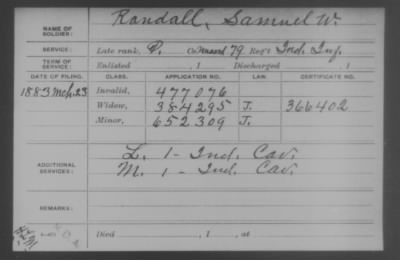 NAME OF SOLDIER: Randall, Samuel W.
SERVICE: Late rank, P. Co. 79 Reg't Ind. Inf.
TERM OF SERVICE: Enlisted , 1 Discharged , 1
DATE OF FILING. CLASS. APPLICATION NO. LAW. CERTIFICATE NO.
1883 Mch. 23 Invalid, 477076
Widow, 384295 J. 366402
Minor, 652309 J.
ADDITIONAL SERVICES: L. 1 - Ind. Cav.
M. 1 - Ind. Cav.
REMARKS:
Died , 1 , at